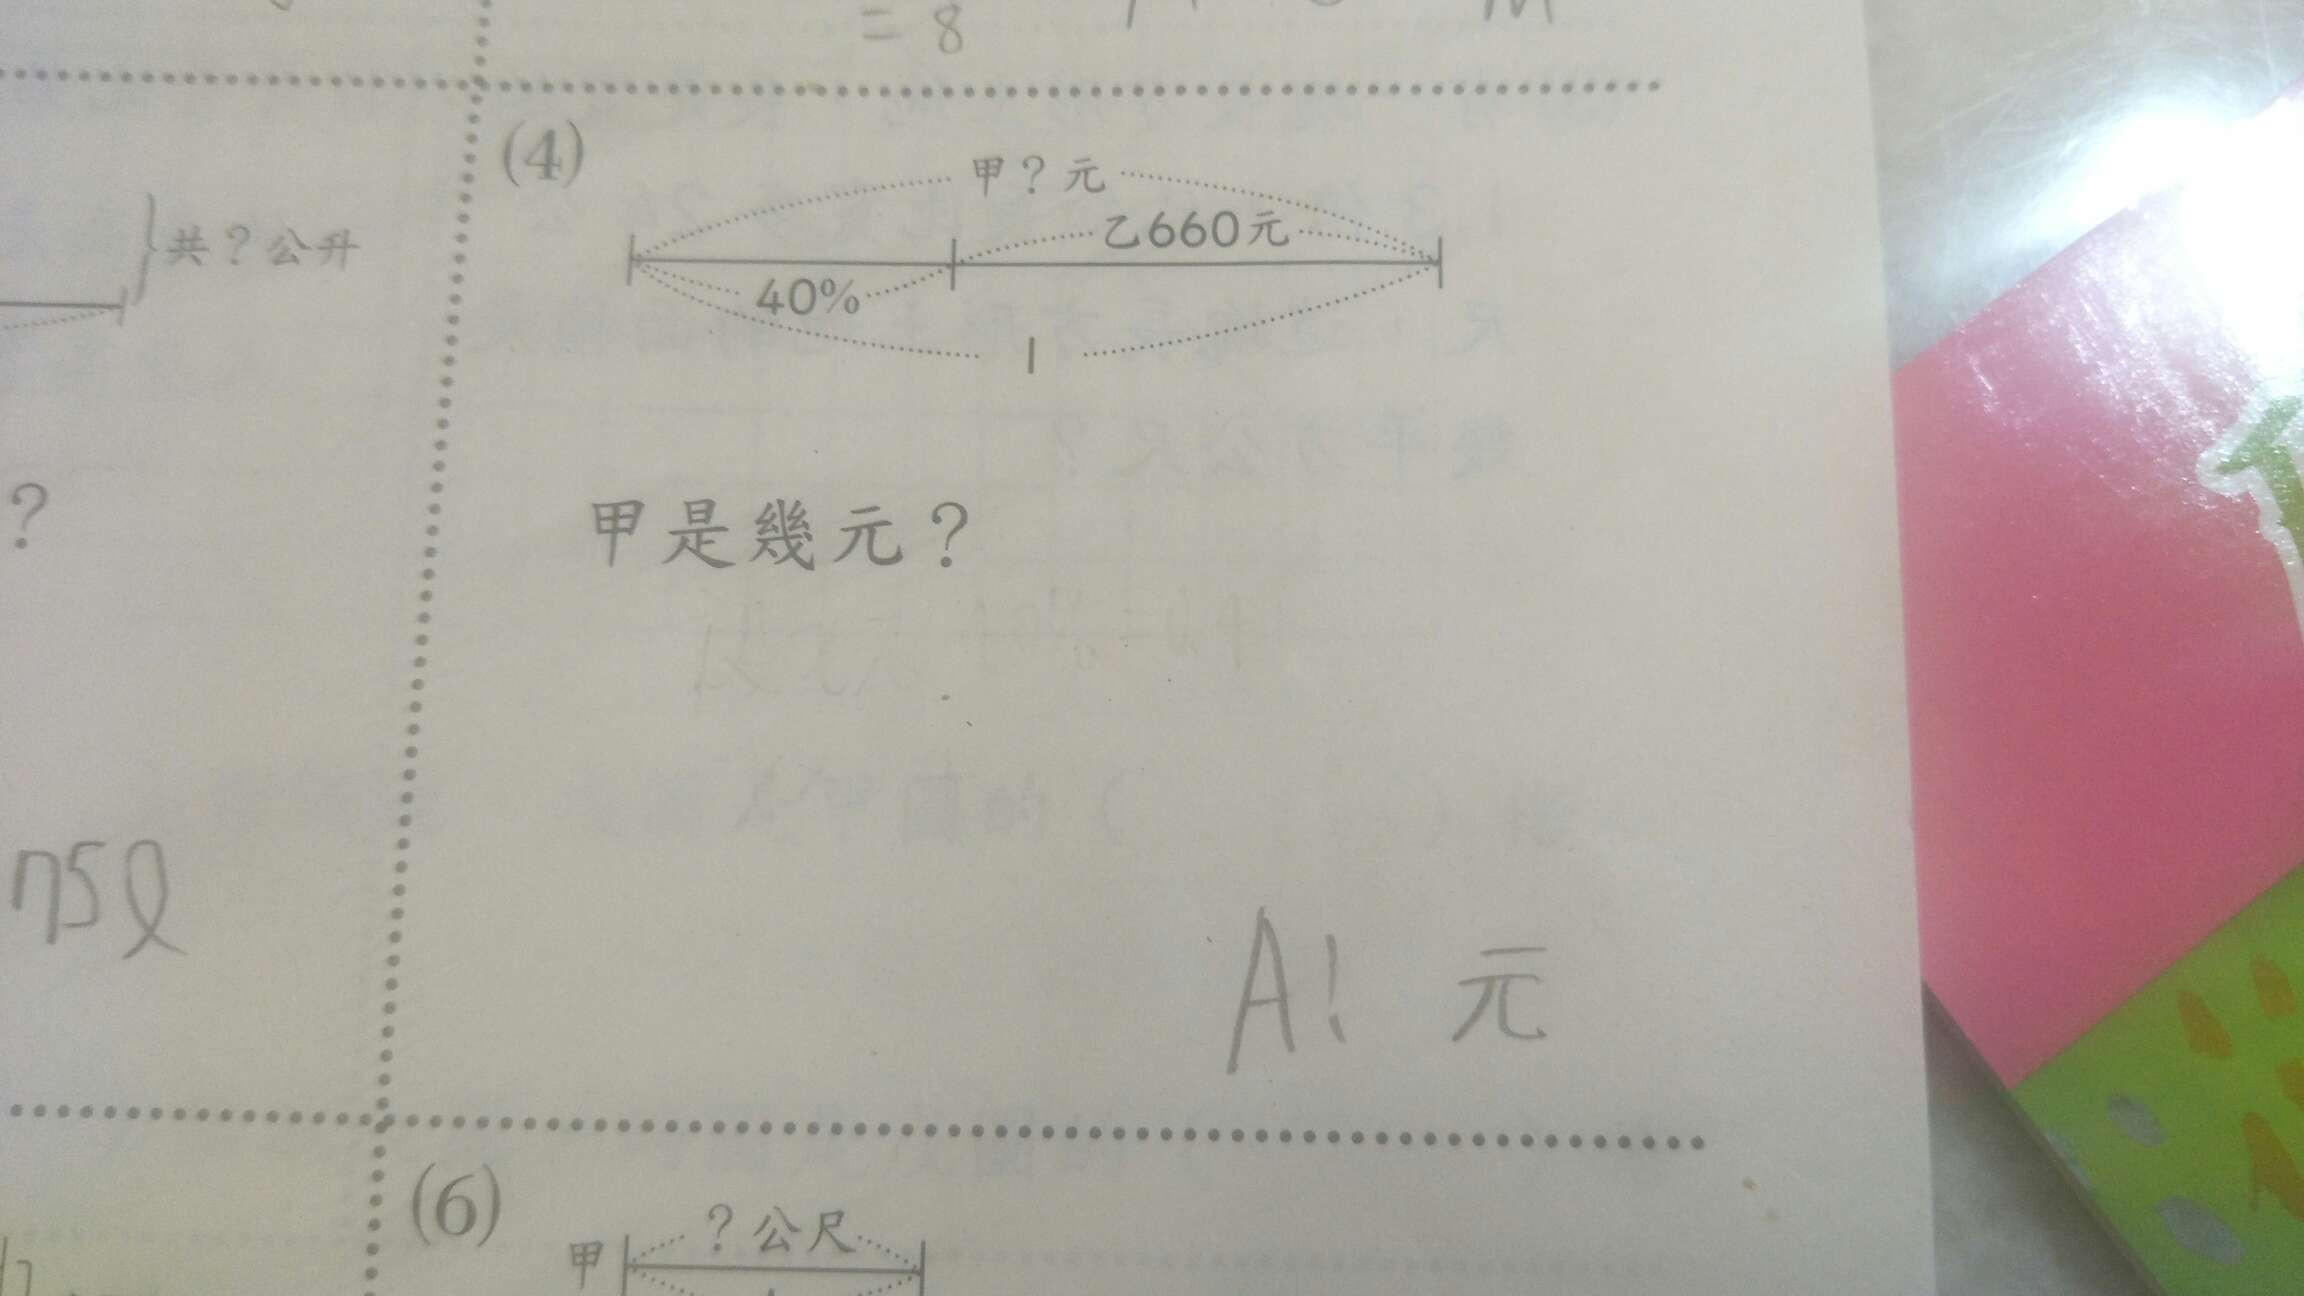 = 8
(4)
甲？元
乙660元
40%
1
共？公升
甲是幾元？
?
75l
A! 元
(6)
？公尺
甲